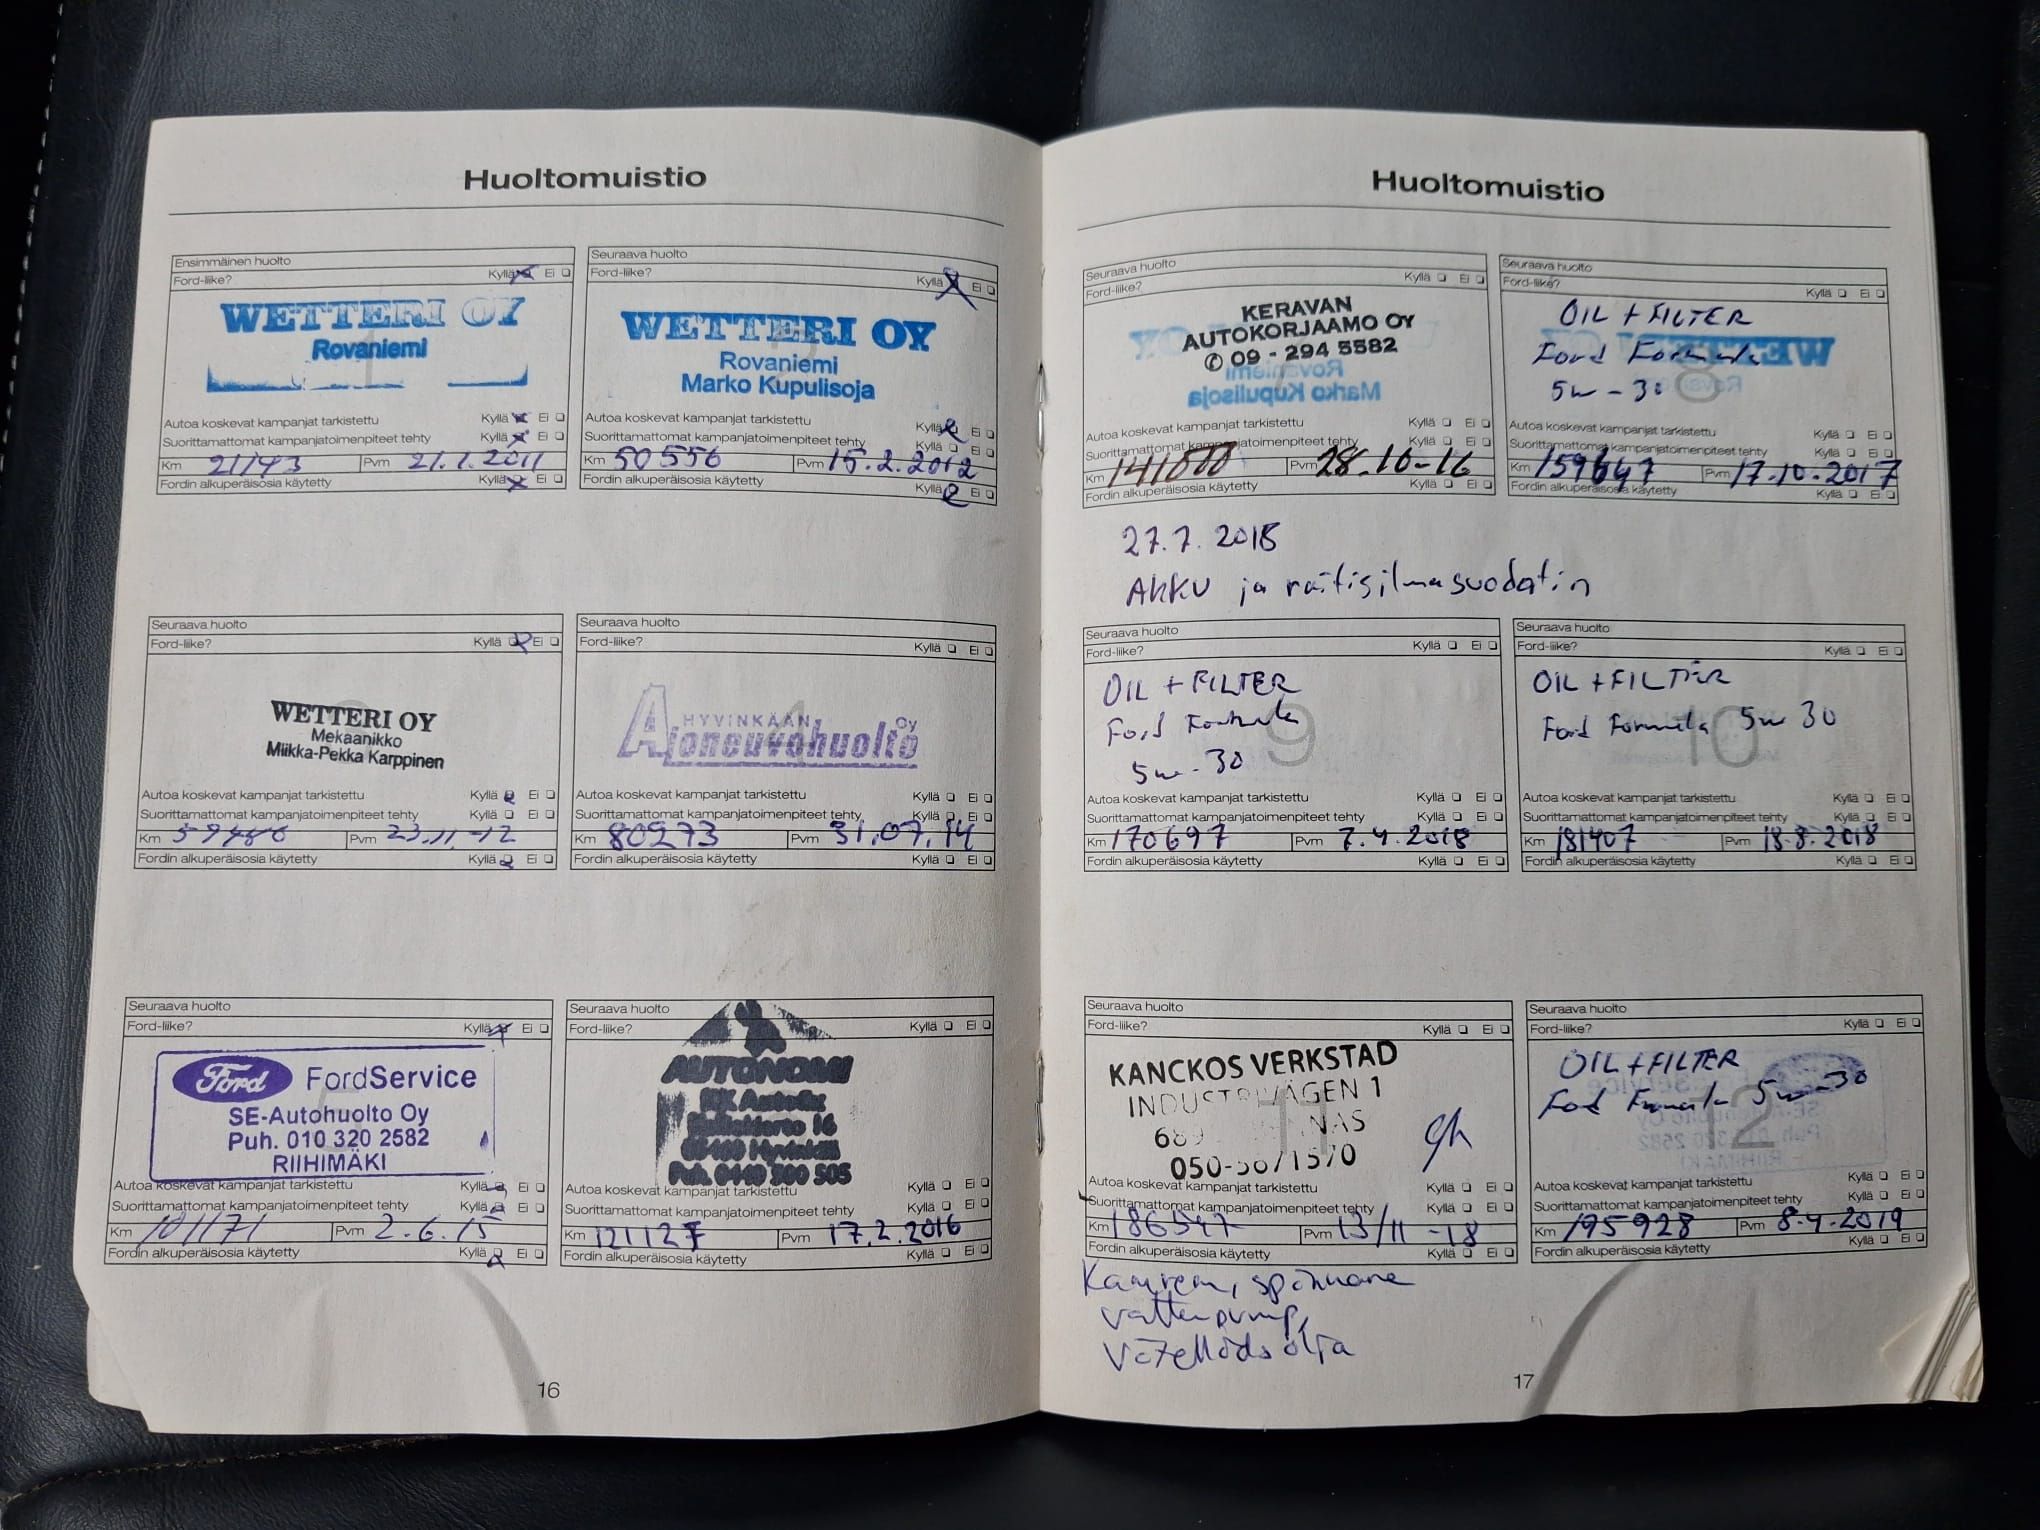 Huoltomuistio
Ensimmäinen huolto
Ford-liike? Kyllä Ei
WETTERI OY
Rovaniemi
Autoa koskevat kampanjat tarkistettu Kyllä Ei
Suorittamattomat kampanjatoimenpiteet tehty Kyllä Ei
Km 21143 Pvm 21.1.2011
Fordin alkuperäisosia käytetty Kyllä Ei
Seuraava huolto
Ford-liike? Kyllä Ei
WETTERI OY
Rovaniemi
Marko Kupulisoja
Autoa koskevat kampanjat tarkistettu Kyllä Ei
Suorittamattomat kampanjatoimenpiteet tehty Kyllä Ei
Km 50556 Pvm 15.2.2012
Fordin alkuperäisosia käytetty Kyllä Ei
Seuraava huolto
Ford-liike? Kyllä Ei
WETTERI OY
Mekaanikko
Miikka-Pekka Karppinen
Autoa koskevat kampanjat tarkistettu Kyllä Ei
Suorittamattomat kampanjatoimenpiteet tehty Kyllä Ei
Km Pvm 23.11.-12
Fordin alkuperäisosia käytetty Kyllä Ei
Seuraava huolto
Ford-liike? Kyllä Ei
HYVINKÄÄN
Ajoneuvohuolto Oy
Autoa koskevat kampanjat tarkistettu Kyllä Ei
Suorittamattomat kampanjatoimenpiteet tehty Kyllä Ei
Km 80273 Pvm 31.07.14
Fordin alkuperäisosia käytetty Kyllä Ei
Seuraava huolto
Ford-liike? Kyllä Ei
Ford FordService
SE-Autohuolto Oy
Puh. 010 320 2582
RIIHIMÄKI
Autoa koskevat kampanjat tarkistettu Kyllä Ei
Suorittamattomat kampanjatoimenpiteet tehty Kyllä Ei
Km 101171 Pvm 2.6.15
Fordin alkuperäisosia käytetty Kyllä Ei
Seuraava huolto
Ford-liike? Kyllä Ei
AUTONOMI
16
Puh. 0440 300 505
Autoa koskevat kampanjat tarkistettu Kyllä Ei
Suorittamattomat kampanjatoimenpiteet tehty Kyllä Ei
Km 121127 Pvm 17.2.2016
Fordin alkuperäisosia käytetty Kyllä Ei
16
Huoltomuistio
Seuraava huolto
Ford-liike? Kyllä Ei
KERAVAN
AUTOKORJAAMO OY
✆ 09 - 294 5582
Autoa koskevat kampanjat tarkistettu Kyllä Ei
Suorittamattomat kampanjatoimenpiteet tehty Kyllä Ei
Km 141000 Pvm 28.10-16
Fordin alkuperäisosia käytetty Kyllä Ei
Seuraava huolto
Ford-liike? Kyllä Ei
OIL + FILTER
Ford Formula
5w-30
8
Autoa koskevat kampanjat tarkistettu Kyllä Ei
Suorittamattomat kampanjatoimenpiteet tehty Kyllä Ei
Km 159647 Pvm 17.10.2017
Fordin alkuperäisosia käytetty Kyllä Ei
27.7.2018
AKKU ja raitisilmasuodatin
Seuraava huolto
Ford-liike? Kyllä Ei
OIL + FILTER
Ford Formula
5w-30
9
Autoa koskevat kampanjat tarkistettu Kyllä Ei
Suorittamattomat kampanjatoimenpiteet tehty Kyllä Ei
Km 170697 Pvm 7.4.2018
Fordin alkuperäisosia käytetty Kyllä Ei
Seuraava huolto
Ford-liike? Kyllä Ei
OIL + FILTER
Ford Formula 5w 30
10
Autoa koskevat kampanjat tarkistettu Kyllä Ei
Suorittamattomat kampanjatoimenpiteet tehty Kyllä Ei
Km 181407 Pvm 18.8.2018
Fordin alkuperäisosia käytetty Kyllä Ei
Seuraava huolto
Ford-liike? Kyllä Ei
KANCKOS VERKSTAD
INDUSTRIVÄGEN 1
11
050-5671570
Autoa koskevat kampanjat tarkistettu Kyllä Ei
Suorittamattomat kampanjatoimenpiteet tehty Kyllä Ei
Km 186547 Pvm 13/11-18
Fordin alkuperäisosia käytetty Kyllä Ei
Kamrem, spännare
vattenpump,
växellådsolja
Seuraava huolto
Ford-liike? Kyllä Ei
OIL + FILTER
Ford Formula 5w-30
12
Autoa koskevat kampanjat tarkistettu Kyllä Ei
Suorittamattomat kampanjatoimenpiteet tehty Kyllä Ei
Km 195928 Pvm 8.4.2019
Fordin alkuperäisosia käytetty Kyllä Ei
17